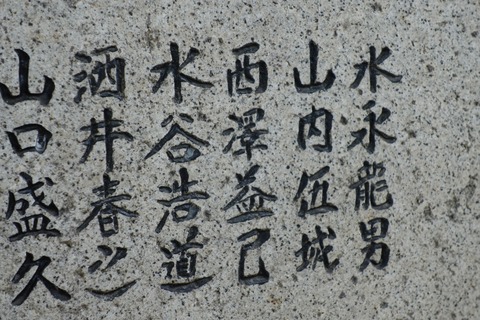 水永龍男
山内伍城
西澤益己
水谷浩道
酒井春之
山口盛久